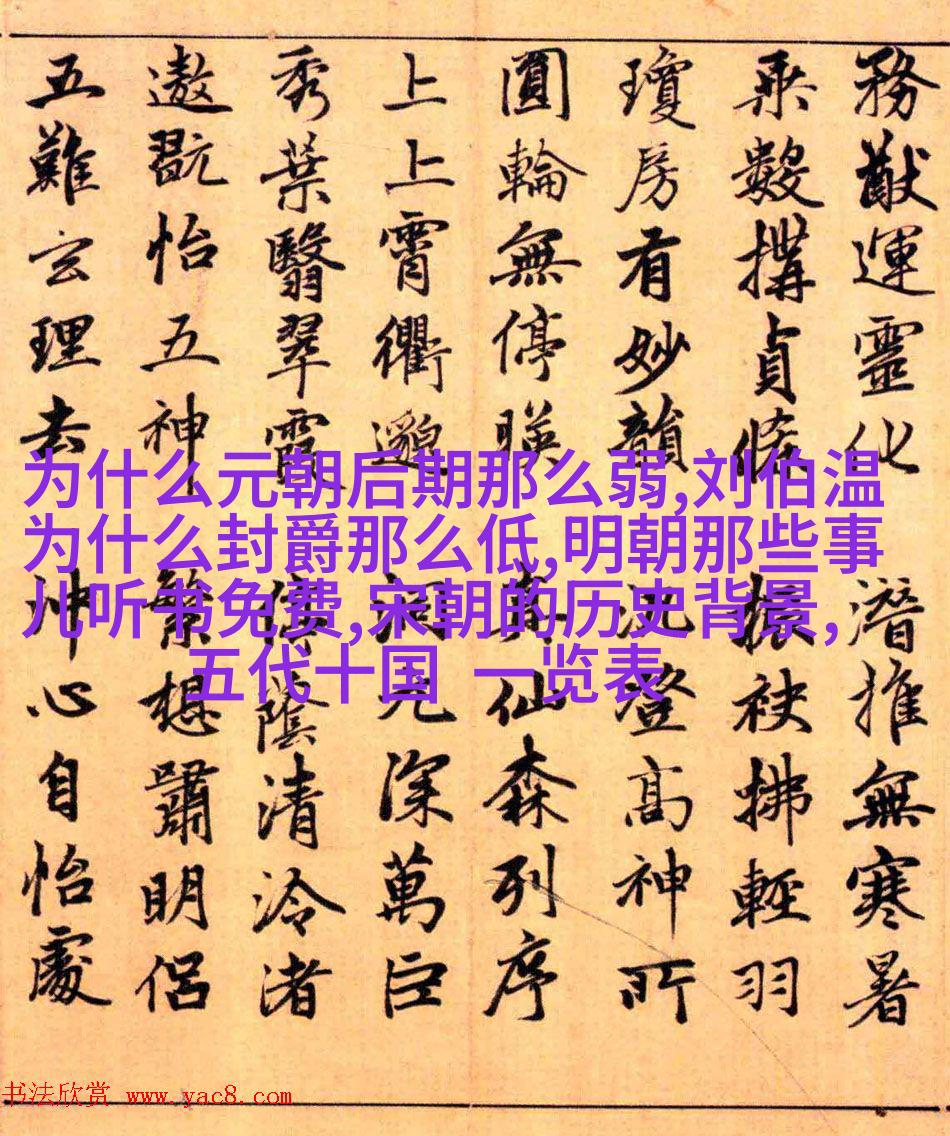 務猷運靈化 潛推無寒暑
乗數搆貞條 振袂拂輕羽
瓊房有妙韻 澄高神所
圓輪無停暎 真仙森列序
上上霄衢邈 洞元深萬巨
秀葉翳翠霞 蔭清泠渚
遨翫怡五神 繁想嘯明侶
五難玄理去 冲心自怡處
为什么元朝后期那么弱,刘伯温
为什么封爵那么低,明朝那些事
儿听书免费,宋朝的历史背景,
五代十国 一览表
书法欣赏 www.yac8.com